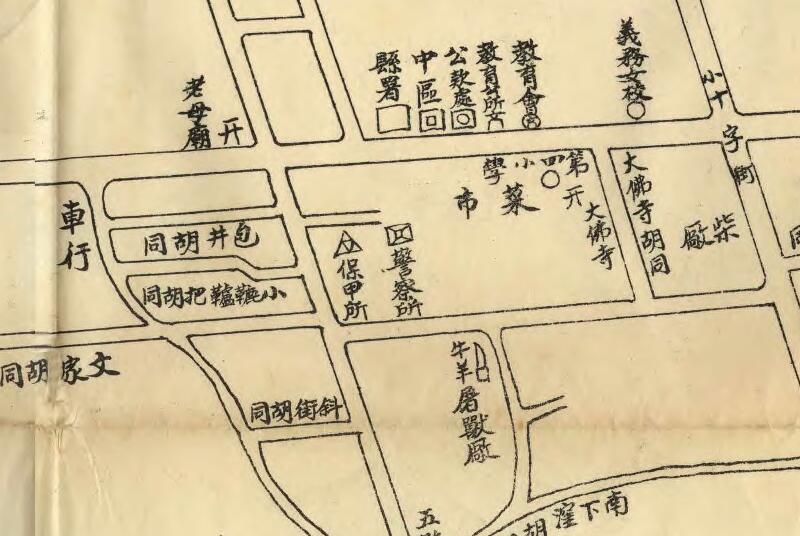 義務女校
教育會
教育公所
公款處
中區
縣署
老母廟
小十字街
第四小學
菜市
大佛寺
大佛寺胡同
柴廠
車行
包井胡同
小轆轤把胡同
保甲所
警察所
文家胡同
斜街胡同
牛羊屠獸廠
南下窪胡
五